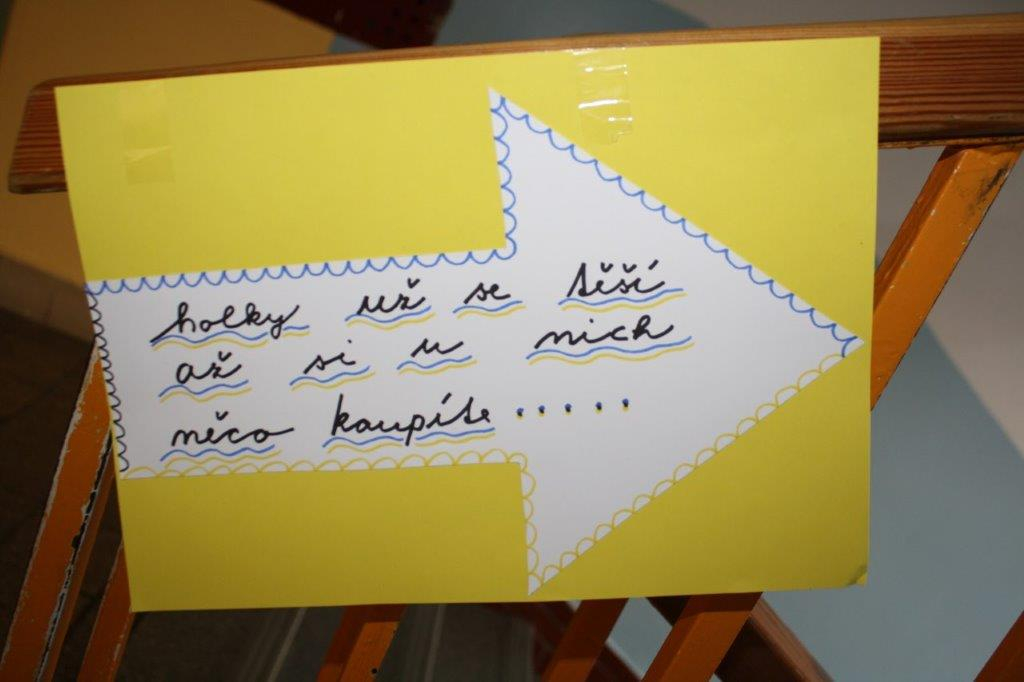 holky už se těší
až si u nich
něco koupíte .....